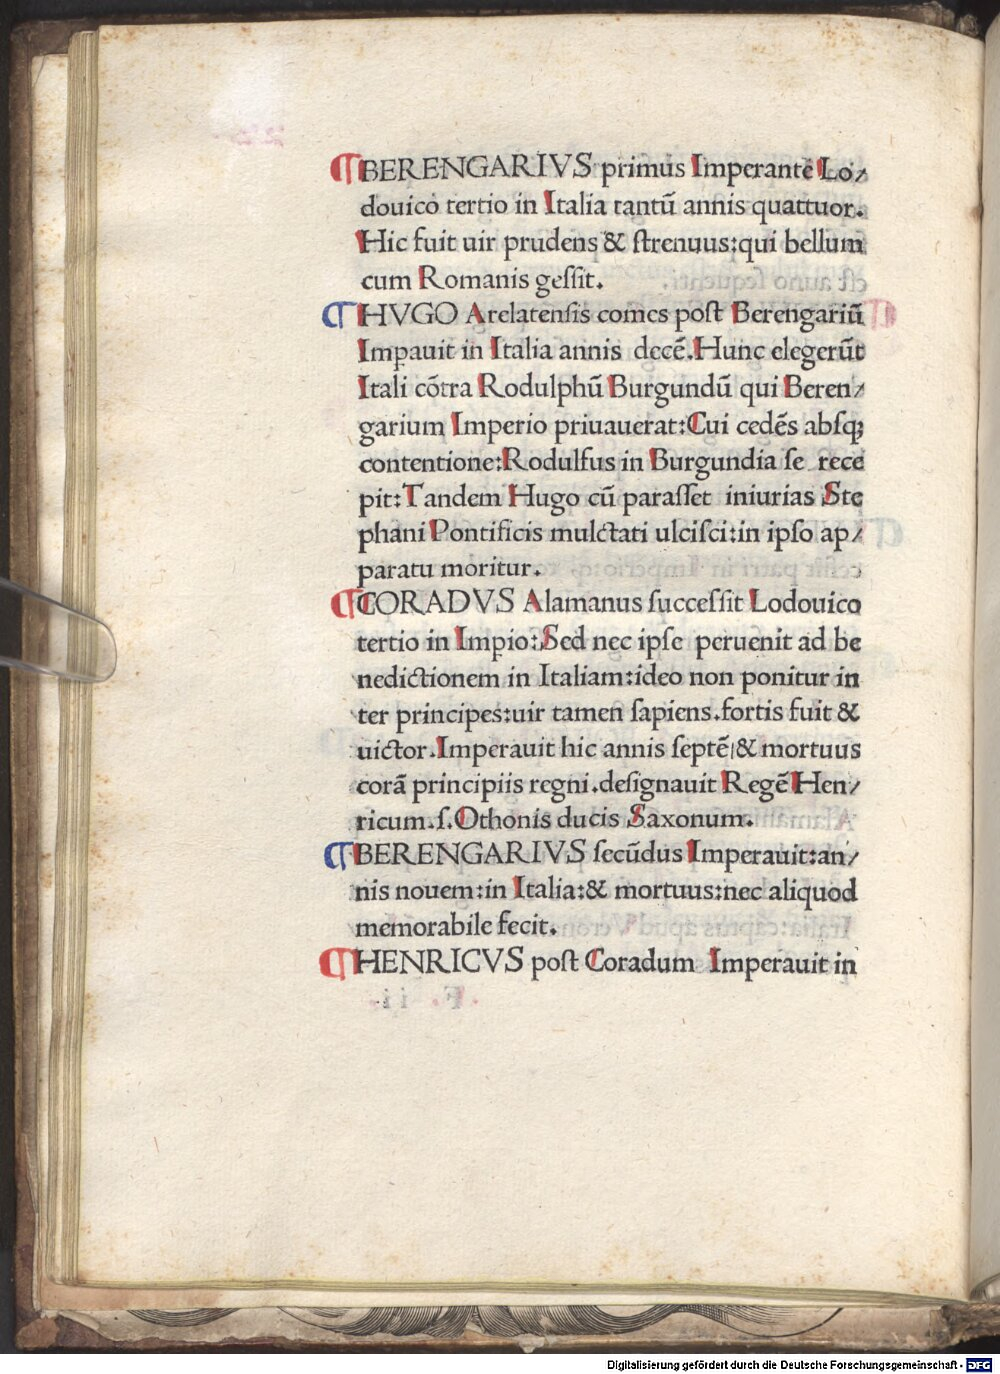 ¶BERENGARIVS primus Imperantē Lo/
douico tertio in Italia tantū annis quattuor.
Hic fuit uir prudens & ſtrenuus:qui bellum
cum Romanis geſſit.
¶HVGO Arelatenſis comes poſt Berengariū
Imꝑauit in Italia annis decē.Hunc elegerūt
Itali cōtra Rodulphū Burgundū qui Beren/
garium Imperio priuauerat:Cui cedēs abſqꝫ
contentione:Rodulfus in Burgundia ſe rece
pit:Tandem Hugo cū paraſſet iniurias Ste
phani Pontificis mulctati ulciſci:in ipſo ap/
paratu moritur.
¶CORADVS Alamanus ſucceſſit Lodouico
tertio in Imꝑio:Sed nec ipſe peruenit ad be
nedictionem in Italiam:ideo non ponitur in
ter principes:uir tamen ſapiens.fortis fuit &
uictor.Imperauit hic annis ſeptē|& mortuus
corā principiis regni.deſignauit Regē Hen/
ricum.ſ.Othonis ducis Saxonum.
¶BERENGARIVS ſecūdus Imperauit:an/
nis nouem:in Italia:& mortuus:nec aliquod
memorabile fecit.
¶HENRICVS poſt Coradum Imperauit in
Digitalisierung gefördert durch die Deutsche Forschungsgemeinschaft - DFG